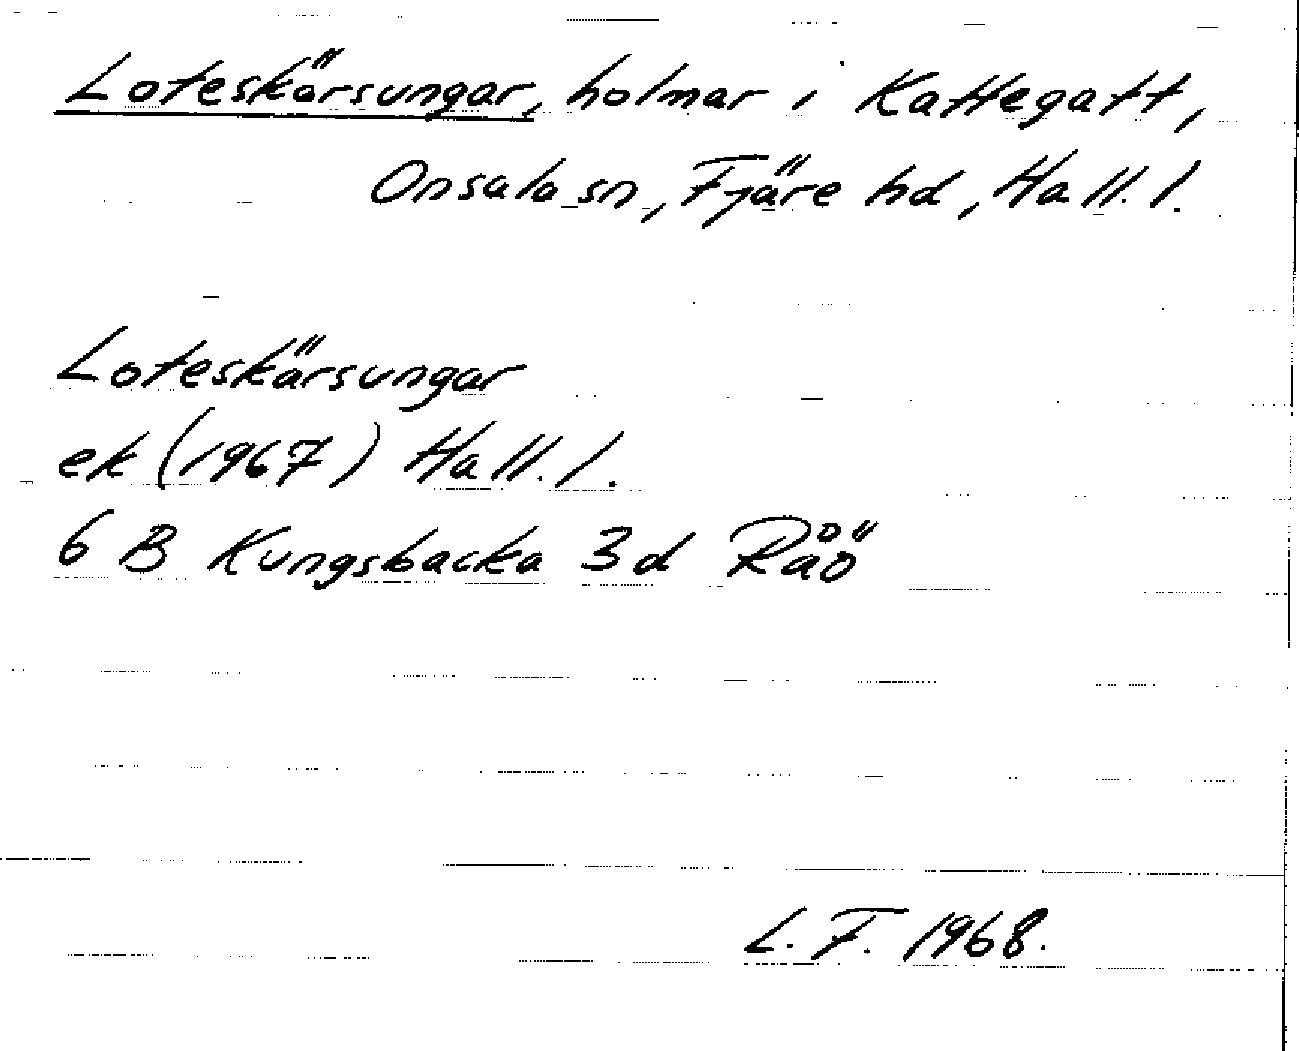 Loteskärsungar, holmar i Kattegatt,
Onsala sn, Fjäre hd, Hall. l.
Loteskärsungar
ek (1967) Hall. l.
6 B Kungsbacka 3d Råö
L. F. 1968.